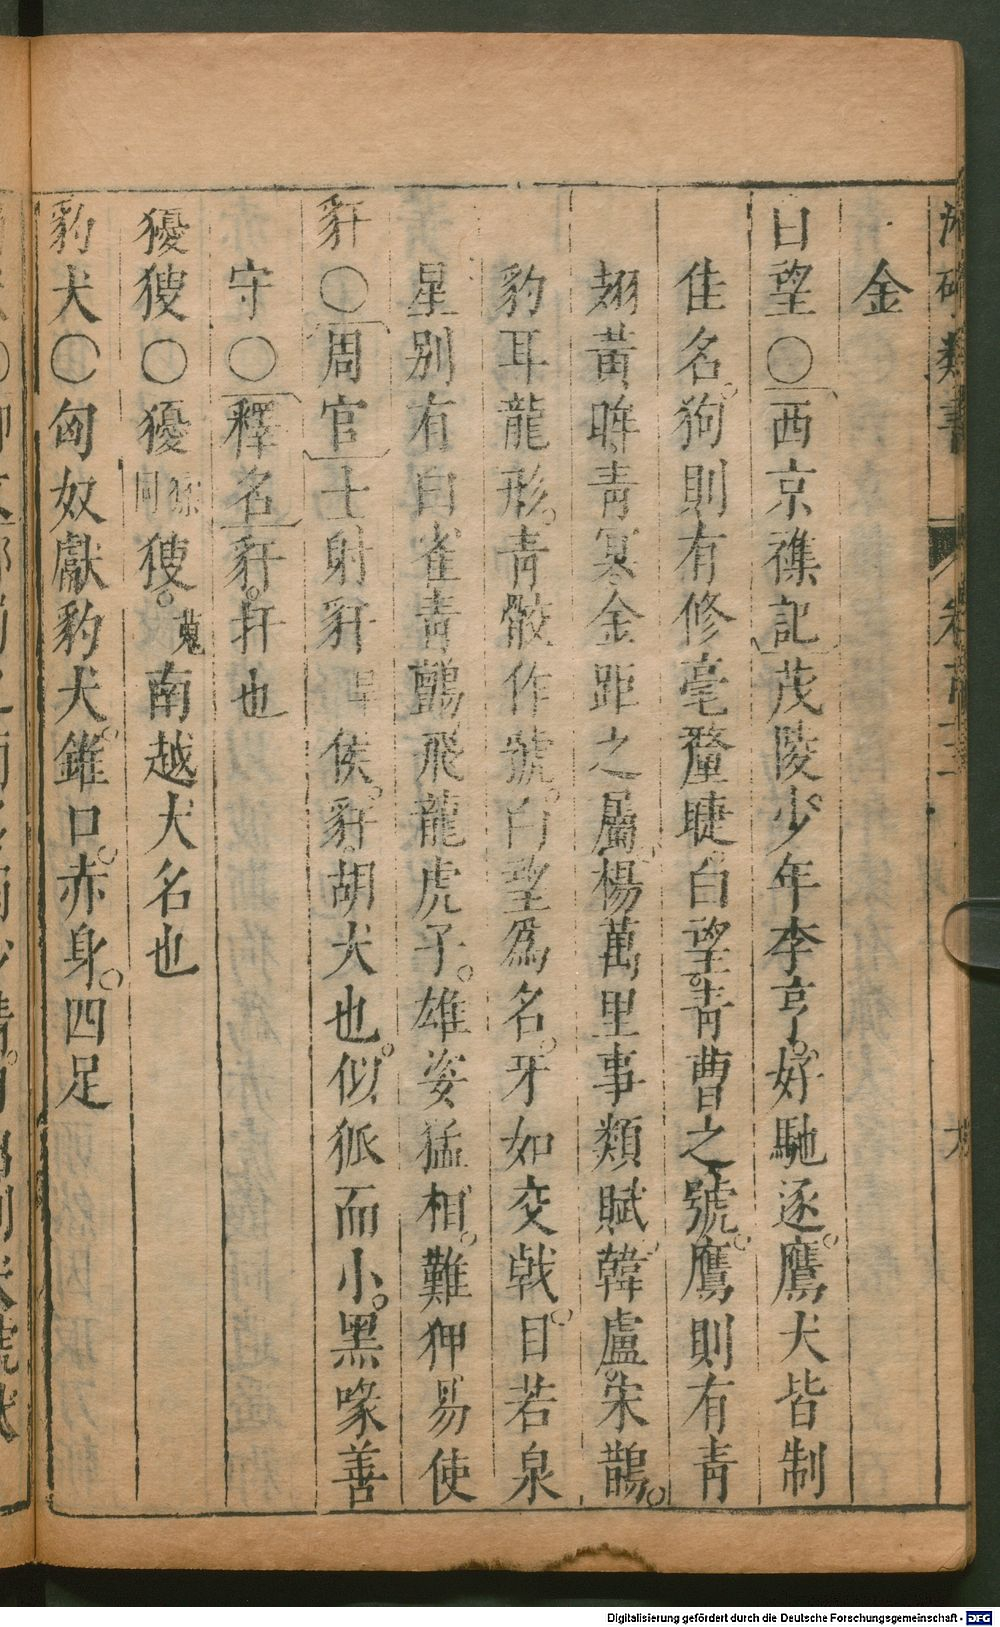 金
白望○西京襍記茂陵少年李亨好馳逐鷹犬皆制
佳名狗則有修毫釐睫白望青曹之號鷹則有青
翅黃眸青冥金距之屬楊萬里事類賦韓盧宋鵲
豹耳龍形青骹作號白望爲名牙如交戟目若泉
星别有白雀青鸇飛龍虎子雄姿猛相難狎易使
豻○周官士射豻侯豻胡犬也似狐而小黑喙善
守○釋名豻豻也
獶獀○獶獀南越犬名也
豹犬○匈奴獻豹犬錐口赤身四足
類書
Digitalisierung gefördert durch die Deutsche Forschungsgemeinschaft - DFG